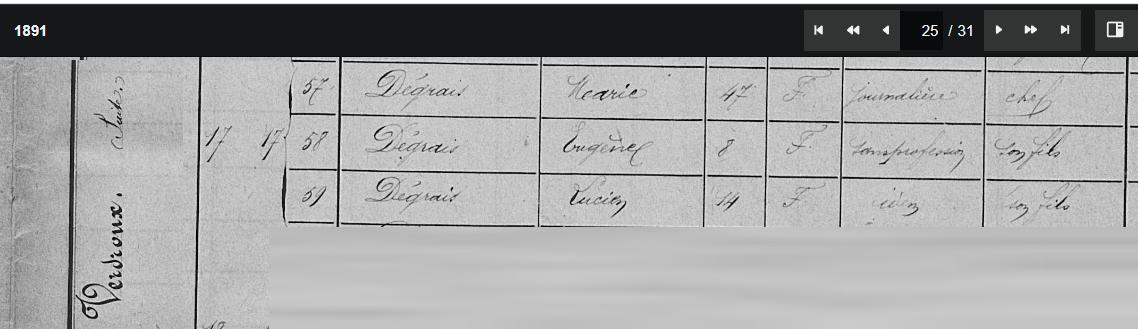 1891
25 / 31
57 Dégrais Marie 47 F. journalière chef
17 17 58 Dégrais Eugène 8 F. sans profession son fils
59 Dégrais Lucien 14 F. idem son fils
Verdroux. (Suite.)